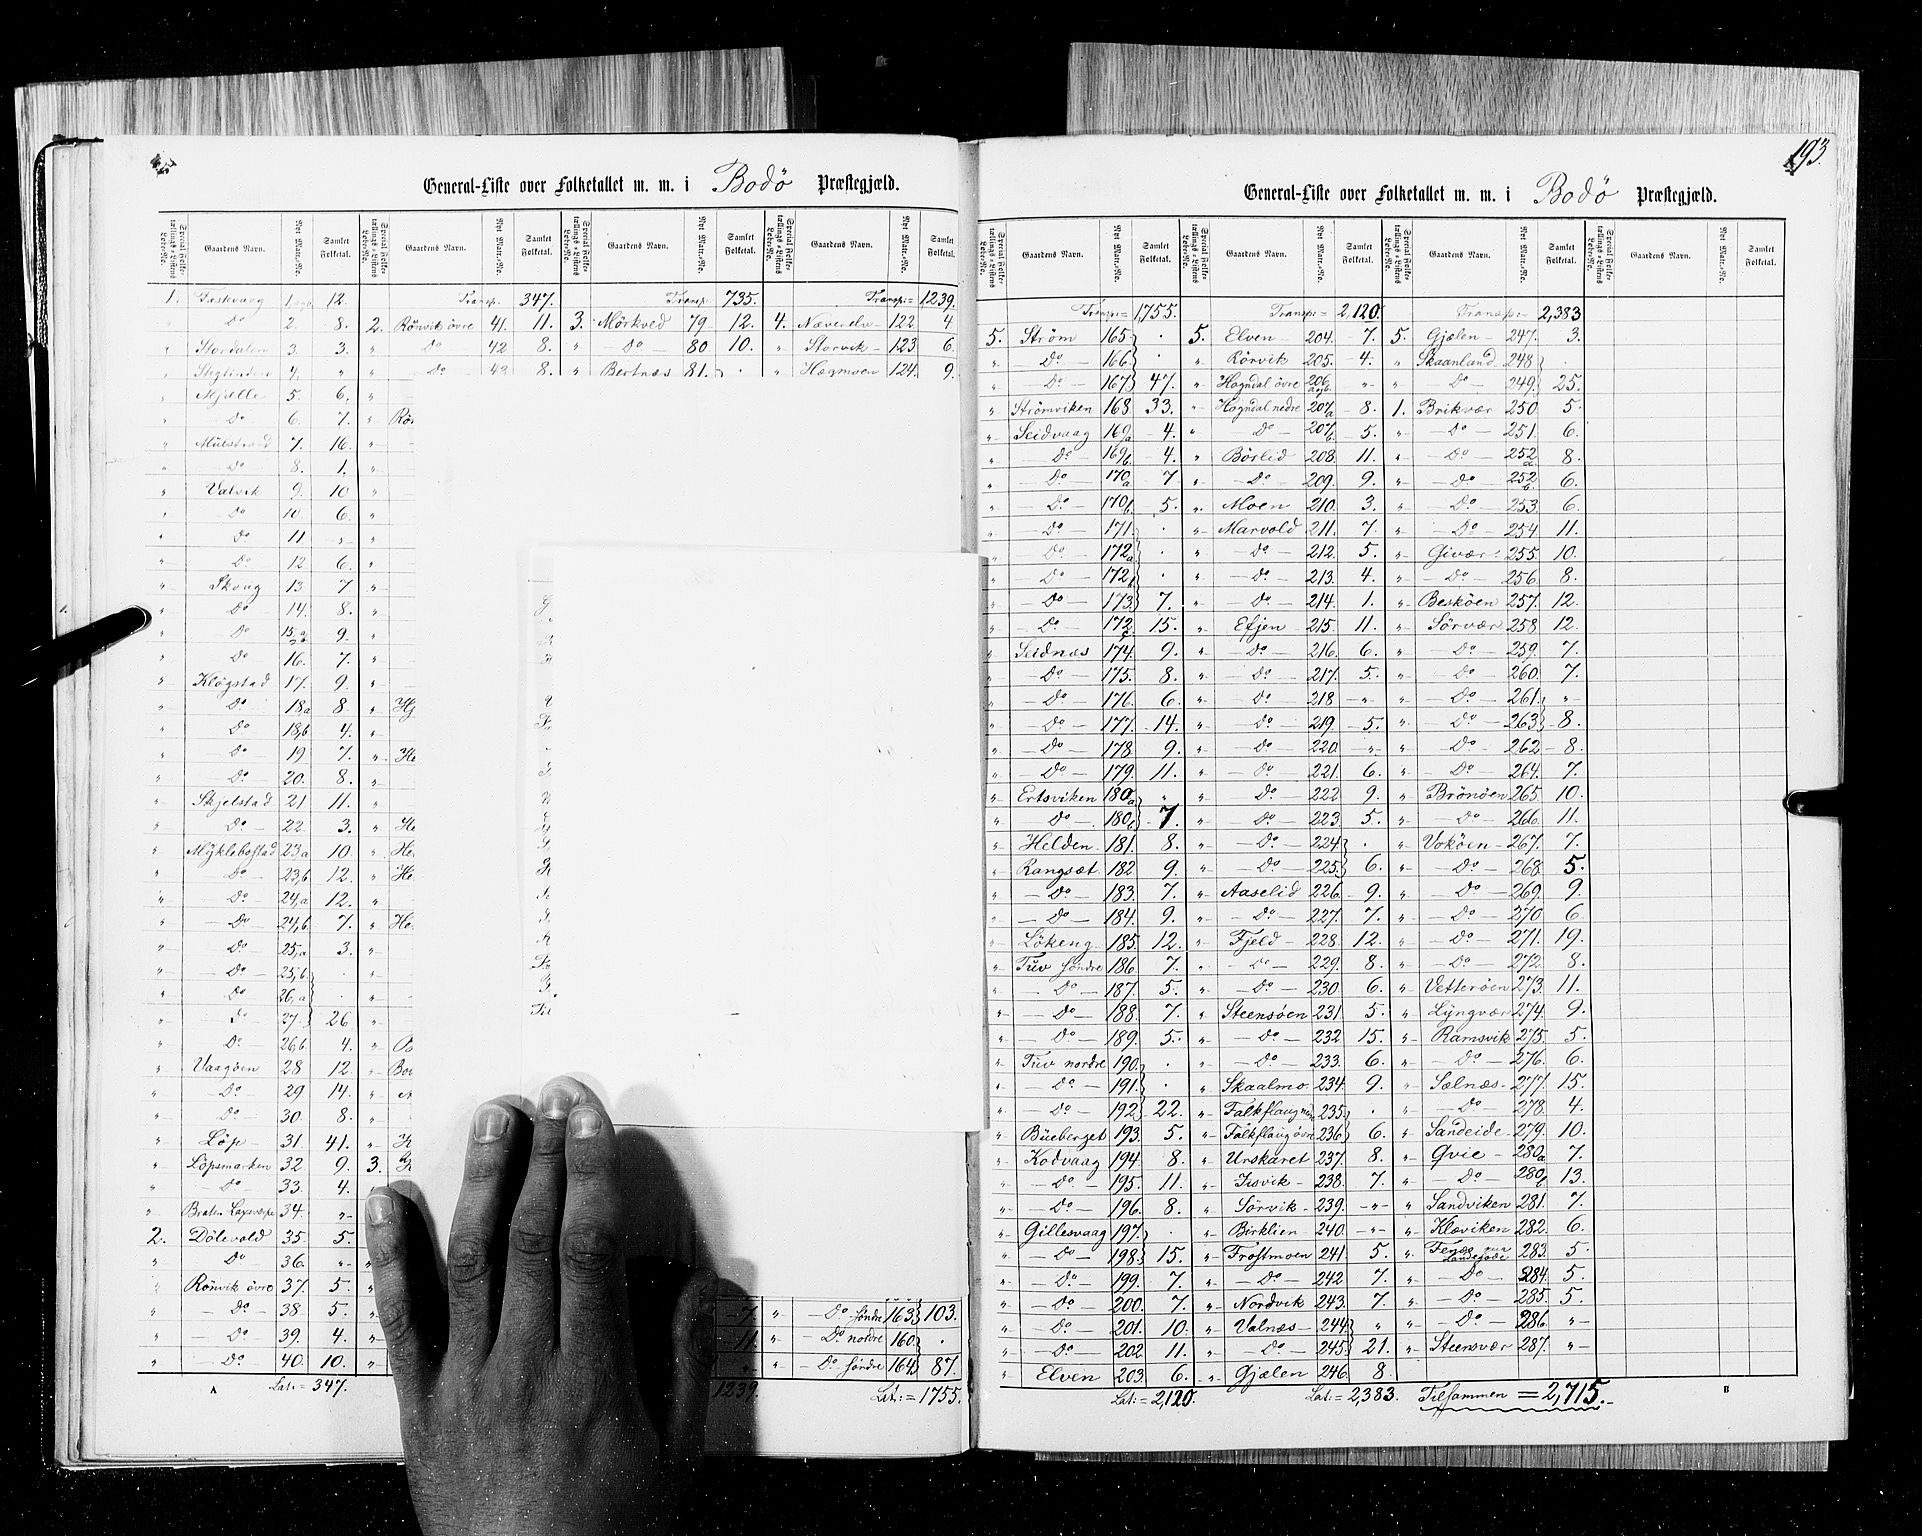 General-Liste over Folketallet m. m. i Bodø Præstegjæld.
Special Folketællings-Listens Løbe-No. Gaardens Navn. Nyt Matr.-No. Samlet Folketal. Special Folketællings-Listens Løbe-No. Gaardens Navn. Nyt Matr.-No. Samlet Folketal. Special Folketællings-Listens Løbe-No. Gaardens Navn. Nyt Matr.-No. Samlet Folketal. Special Folketællings-Listens Løbe-No. Gaardens Navn. Nyt Matr.-No. Samlet Folketal.
1. 12. Transp. 347. Transp. 735. Transp:= 1239.
" Do 2. 8. 2. Rönvik övre 41. 11. 3. Mörkved 79 12. 4. Næverelv 122 4.
" Stordalen 3. 3. " Do 42 8. " Do 80 10. " Storvik 123 6.
" Steglinden 4. " " Do 43 8. " Bertnæs 81. . " Hægmoen 124. 9.
" Mjælle 5. 6. "
" Do 6. 7. " Rön
" Mulstrand 7. 16. "
" Do 8. 1. "
" Valvik 9. 10 "
" Do 10 6. "
" Do 11 " "
" Do 12 6. "
" Skoug 13 7 "
" Do 14. 8. "
" Do 15 9. "
" Do 16. 7. "
" Klögstad 17. 9. "
" Do 18a 8. " Hj
" Do 18,b 4. "
" Do 19 7. " He
" Do 20. 8. "
" Skjelstad 21 11. "
" Do 22. 3. " He
" Myklebostad 23a 10. " He
" Do 23,b 12. " He
" Do 24,a 12. "
" Do 24,b 7. " He
" Do 25,a 3. "
" Do 25,b . "
" Do 26,a . "
" Do 27. 26 "
" Do 26,b 4. "
" Vaagöen 28 12. " Bo
" Do 29 14. "
" Do 30. 8. "
" Löp 31. 41. "
" Löpsmarken 32 9. 3.
" Do 33. 4. "
" 34. "
2. Dölevold 35 5.
" Do 36. " "
" Rönvik övre 37. 5. "
" Do 38. 5. " 7. " Do söndre 163 103.
" Do 39. 4. " 11. " Do nordre 160 .
" Do 40. 10. " " " Do söndre 164 87.
A Lat:= 347. 1239. Lat:= 1755.
193.
General-Liste over Folketallet m. m. i Bodø Præstegjæld.
Special Folketællings-Listens Løbe-No. Gaardens Navn. Nyt Matr.-No. Samlet Folketal. Special Folketællings-Listens Løbe-No. Gaardens Navn. Nyt Matr.-No. Samlet Folketal. Special Folketællings-Listens Løbe-No. Gaardens Navn. Nyt Matr.-No. Samlet Folketal. Special Folketællings-Listens Løbe-No. Gaardens Navn. Nyt Matr.-No. Samlet Folketal.
Transp:= 1,755. Transp:= 2,120. Transp:= 2,383
5. Ström 165 . 5. Elven 204. 7. 5. Gjælen 247. 3.
" Do 166 . " Rörvik 205. 4. " Skaanland 248 .
" Do 167 47. " Hogndal övre 206 a og b. " " Do 249. 25.
" Strömviken 168. 33. " Hogndal nedre 207a 8. 1. Brikvær 250. 5.
" Seidvaag 169a 4. " Do 207b. 5. " Do 251. 6.
" Do 169b 4. " Börlid 208. 11. " Do 252a 8.
" Do 170a 7 " Do 209. 9. " Do 252b 6.
" Do 170b. 5. " Moen 210. 3. " Do 253 6.
" Do 171. . " Marvold 211. 7. " Do 254 11.
" Do 172a . " Do 212. 5. " Givær 255. 10.
" Do 172b . " Do 213. 4. " Do 256. 8.
" Do 173. 7. " Do 214. 1. " Besköen 257. 12.
" Do 172c 15. " Efjen 215. 11. " Sörvær 258 12.
" Seidnæs 174. 9. " Do 216. 6. " Do 259. 7.
" Do 175. 8. " Do 217. 5. " Do 260. 7.
" Do 176. 6. " Do 218 " " Do 261. "
" Do 177. 14. " Do 219. 5. " Do 263. 8.
" Do 178. 9. " Do 220. " " Do 262 8.
" Do 179. 11. " Do 221. 6. " Do 264. 7.
" Ertsviken 180a " " Do 222 9. " Brönöen 265. 10.
" Do 180b 7. " Do 223. 5. " Do 266. 11.
" Helden 181. 8. " Do 224. . " Voköen 267. 7.
" Rangsæt 182 9. " Do 225. 6. " Do 268. 5.
" Do 183. 7. " Aaselid 226. 9. " Do 269. 9.
" Do 184. 9. " Do 227. 7. " Do 270 6.
" Lökeng 185. 12. " Fjeld 228. 12. " Do 271. 19.
" Tuv söndre 186. 7. " Do 229. 8. " Do 272. 8.
" Do 187. 5. " Do 230 6. " Vetteröen 273. 11.
" Do 188. 7. " Steensöen 231 5. " Lyngvær 274. 9.
" Do 189. 5. " Do 232 15. " Ramsvik 275. 5.
" Tuv nordre 190. . " Do 233. 6. " Do 276. 6.
" Do 191. . " Skaalmo 234. 9. " Sælnæs 277. 15.
" Do 192. 22. " Falkflaug 235. . " Do 278. 4.
" Büeberget 193. 5. " Falkflaug övre 236. 6. " Sandeide 279. 10.
" Kodvaag 194. 8. " Urskaret 237. 8. " Qvie 280a 7.
" Do 195. 11. " Iisvik 238. 7. " Do 280b 13.
" Do 196. 8. " Sörvik 239. " " Sandviken 281. 7.
" Gillesvaag 197. . " Birklien 240. " " Kleviken 282. 6.
" Do 198. 15. " Frostmoen 241. 5. " Fenes Landegode 283. 5.
" Do 199. 7. " Do 242 7. " Do 284. 5.
" Do 200. 7. " Nordvik 243. 7. " Do 285. 5.
" Do 201. 10. " Valnæs 244. " " Do 286. "
" Do 202 11. " Do 245. 21. " Steensvær 287. "
" Elven 203. 6. " Gjælen 246. 8.
Lat:= 2,120. Lat:= 2,383. Tilsammen = 2,715. B